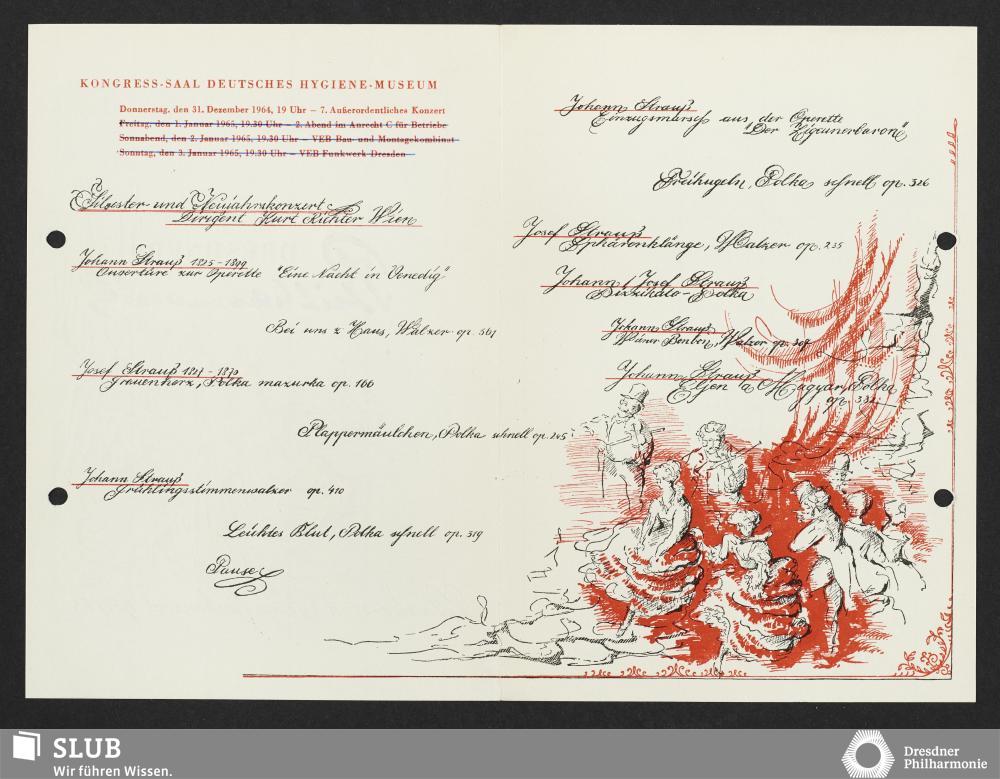 KONGRESS-SAAL DEUTSCHES HYGIENE-MUSEUM
Donnerstag, den 31. Dezember 1964, 19 Uhr – 7. Außerordentliches Konzert
Freitag, den 1. Januar 1965, 19.30 Uhr – 2. Abend im Anrecht C für Betriebe
Sonnabend, den 2. Januar 1965, 19.30 Uhr – VEB Bau- und Montagekombinat
Sonntag, den 3. Januar 1965, 19.30 Uhr – VEB Funkwerk Dresden
Silvester und Neujahrskonzert
Dirigent Kurt Richter Wien
Johann Strauß 1825-1899
Ouvertüre zur Operette "Eine Nacht in Venedig"
Bei uns z Haus, Walzer op. 361
Josef Strauß 1827-1870
Frauenherz, Polka mazurka op. 166
Plappermäulchen, Polka schnell op. 245
Johann Strauß
Frühlingsstimmenwalzer op. 410
Leichtes Blut, Polka schnell op. 319
Pause
Johann Strauß
Einzugsmarsch aus der Operette
"Der Zigeunerbaron"
Freikugeln, Polka schnell op. 326
Josef Strauß
Sphärenklänge, Walzer op. 235
Johann / Josef Strauß
Pizzikato-Polka
Johann Strauß
Wiener Bonbon, Walzer op. 307
Johann Strauß
Eljen a Magyar, Polka
op. 332
SLUB
Wir führen Wissen.
Dresdner
Philharmonie